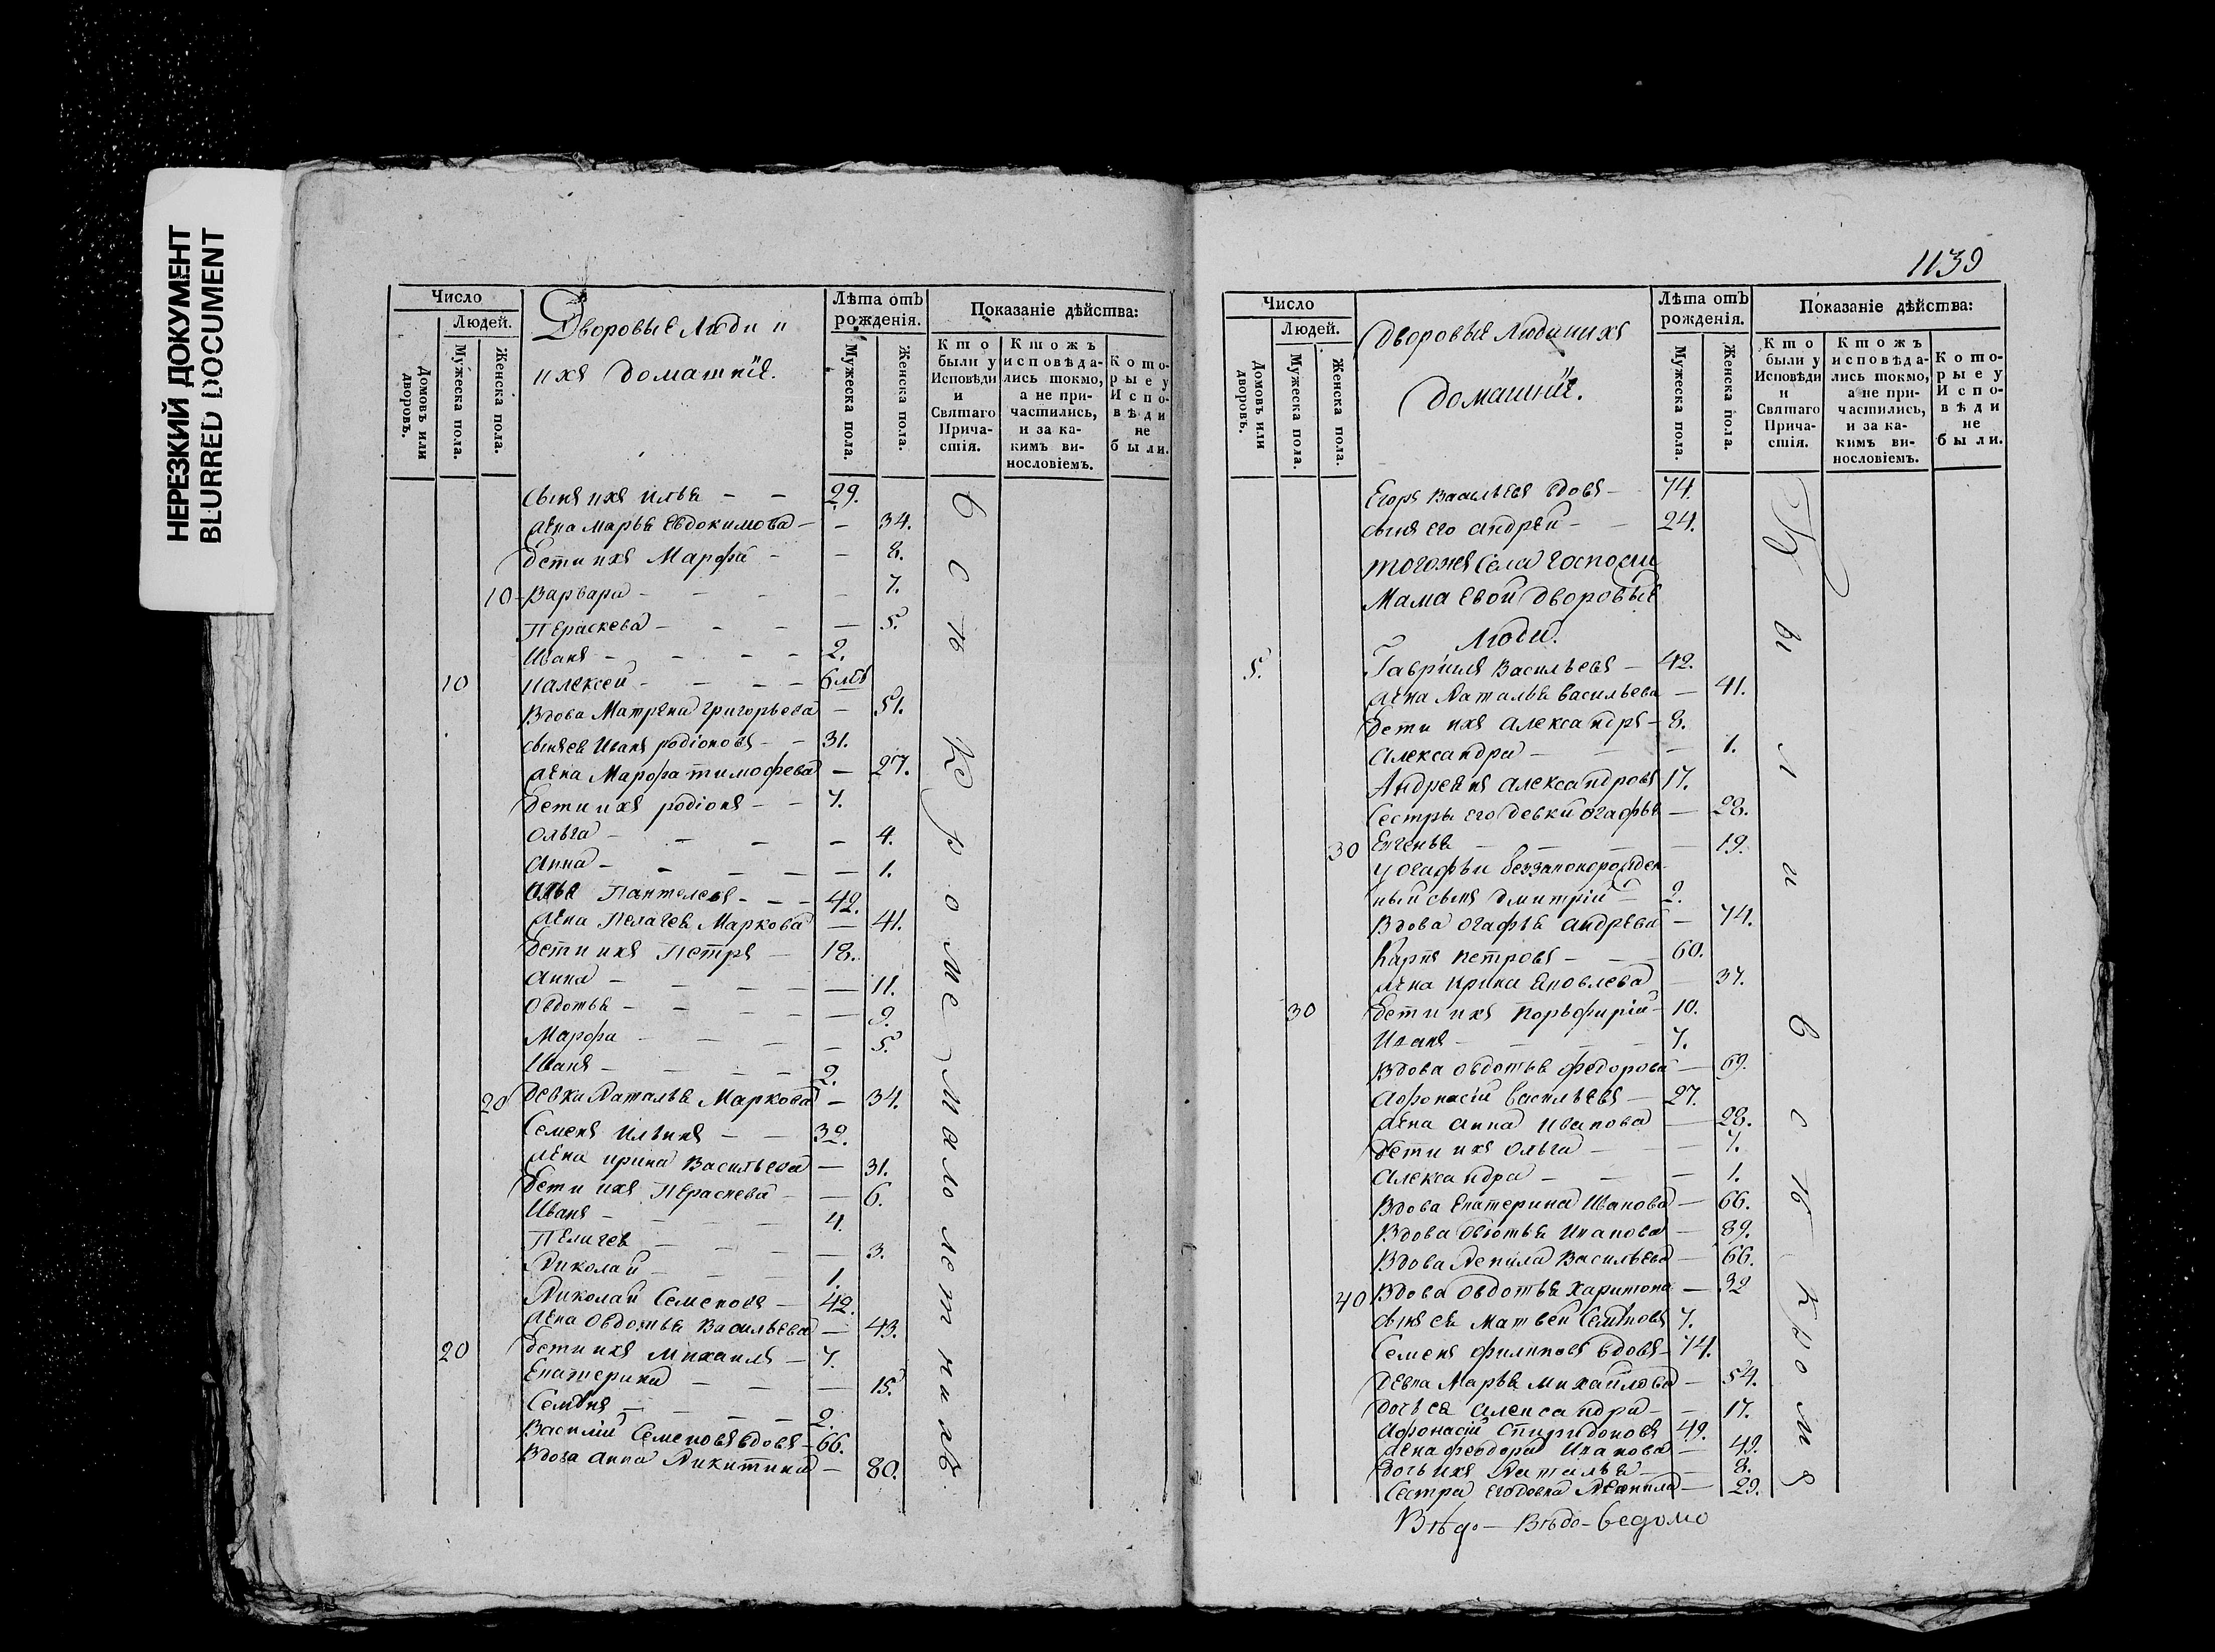 НЕРЕЗКИЙ ДОКУМЕНТ
BLURRED DOCUMENT
Число
Людей.
Домовъ или дворовъ.
Мужеска пола.
Женска пола.
Дворовые Люди и
ихъ домашнїе.
Лѣта отъ рожденія.
Мужеска пола.
Женска пола.
Показаніе дѣйства:
Кто были у Исповѣди и Святаго Причастія.
Ктожъ исповѣдались токмо, а не причастились, и за какимъ винословіемъ.
Которые у Исповѣди не были.
сынъ ихъ илья – – 29.
жена марья Евдокимова – – 34.
дети ихъ Марфа – – 8.
10 Варвара – – 7.
Пераскева – – 5.
Иванъ – – 2.
10 Иалексей – – 6 мѣ
Вдова Матрена григорьева – 51.
сынъ ея Иванъ родіоновъ – – 31.
жена Марфа тимофева – 27.
дети ихъ родіонъ – – 7.
Ольга – – 4.
Анна – – 1.
Пантелеевъ – – 42.
жена Пелагея Маркова – 41.
дети ихъ Петръ – 18.
Анна – – 11.
Овдотья – – 9.
Марфа – – 5.
Иванъ – – 2.
20 девки Наталья Маркова – 34.
Семенъ Ильинъ – – 32.
жена ирина Васильева – 31.
дети ихъ Пераскева – – 6.
Иванъ – – 4.
Пелагея – – 3.
Николай – – 1.
Николай Семеновъ – 42.
жена Овдотья Васильева – 43.
20 дети ихъ Михаилъ – 7.
Екатерина – – 15.
Семѣнъ – – 2.
Василий Семеновъ вдовъ – 66.
Вдова анна Никитина – 80.
всѣ Кроме малолетнихъ.
1139
Число
Людей.
Домовъ или дворовъ.
Мужеска пола.
Женска пола.
Дворовые Люди и ихъ
домашнїе.
Лѣта отъ рожденія.
Мужеска пола.
Женска пола.
Показаніе дѣйства:
Кто были у Исповѣди и Святаго Причастія.
Ктожъ исповѣдались токмо, а не причастились, и за какимъ винословіемъ.
Которые у Исповѣди не были.
Егоръ Васильевъ вдовъ – 74.
сынъ его андрей – – 24.
тогожъ Села Господи
Мамаевой дворовые
Люди.
5. Гавриилъ Васильевъ – 42.
жена Наталья васильева – 41.
дети ихъ александръ – 8.
александра – – 1.
Андреянъ александровъ 17.
Сестры его девки огафья – 28.
30 Евгенья – – 19.
у огафьи беззаконорожден
ный сынъ дмитрїй – 2.
Вдова огафья андрева – 74.
Карпъ петровъ – – 60.
жена ирина Яковлева – 37.
30 дети ихъ Порьфирїй – 10.
Иванъ – – 7.
Вдова овдотья федорова – 69.
афонасій васильевъ – 27.
жена анна иванова – 28.
дети ихъ ольга – – 7.
александра – – 1.
Вдова Екатерина Иванова – 66.
Вдова Овдотья Иванова – 89.
Вдова Ненила Васильева – 66.
40 Вдова Овдотья харитона – 32
сынъ ея матвей Семѣновъ 7.
Семенъ филиповъ вдовъ – 74.
девка Марья михайлова – 54.
дочь ея александра – – 17.
афонасій Спиридоновъ 49.
жена феодора Иванова – 49.
дочь ихъ Наталья – – 8.
Сестра его девка Ненила – 29.
были всѣ кромѣ
Вѣдо – Вѣдо – ведомо